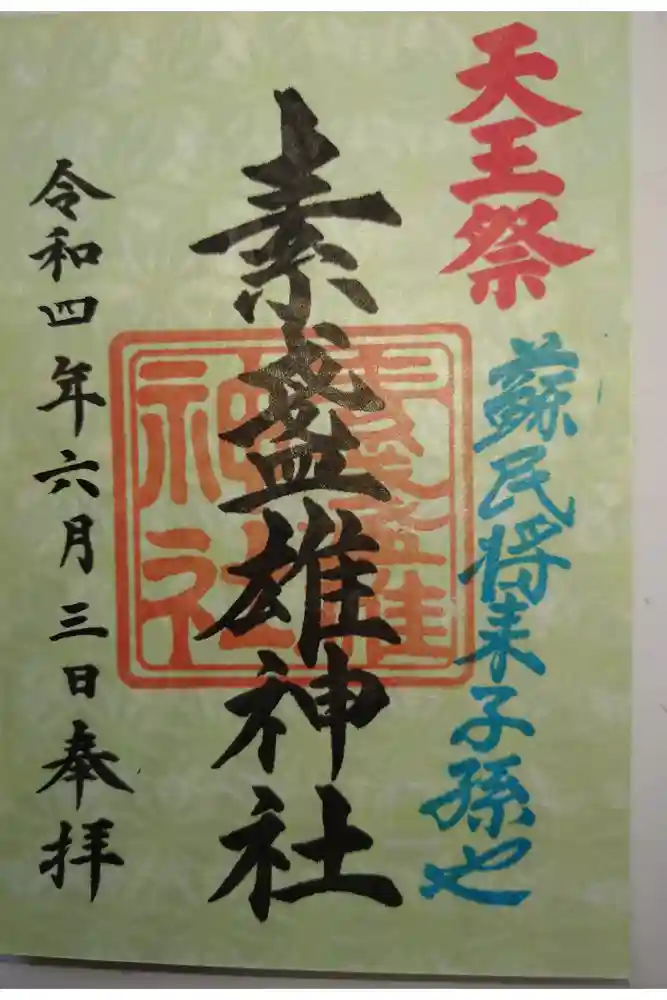 天王祭
蘇民将来子孫也
素盞雄神社
令和四年六月三日奉拝